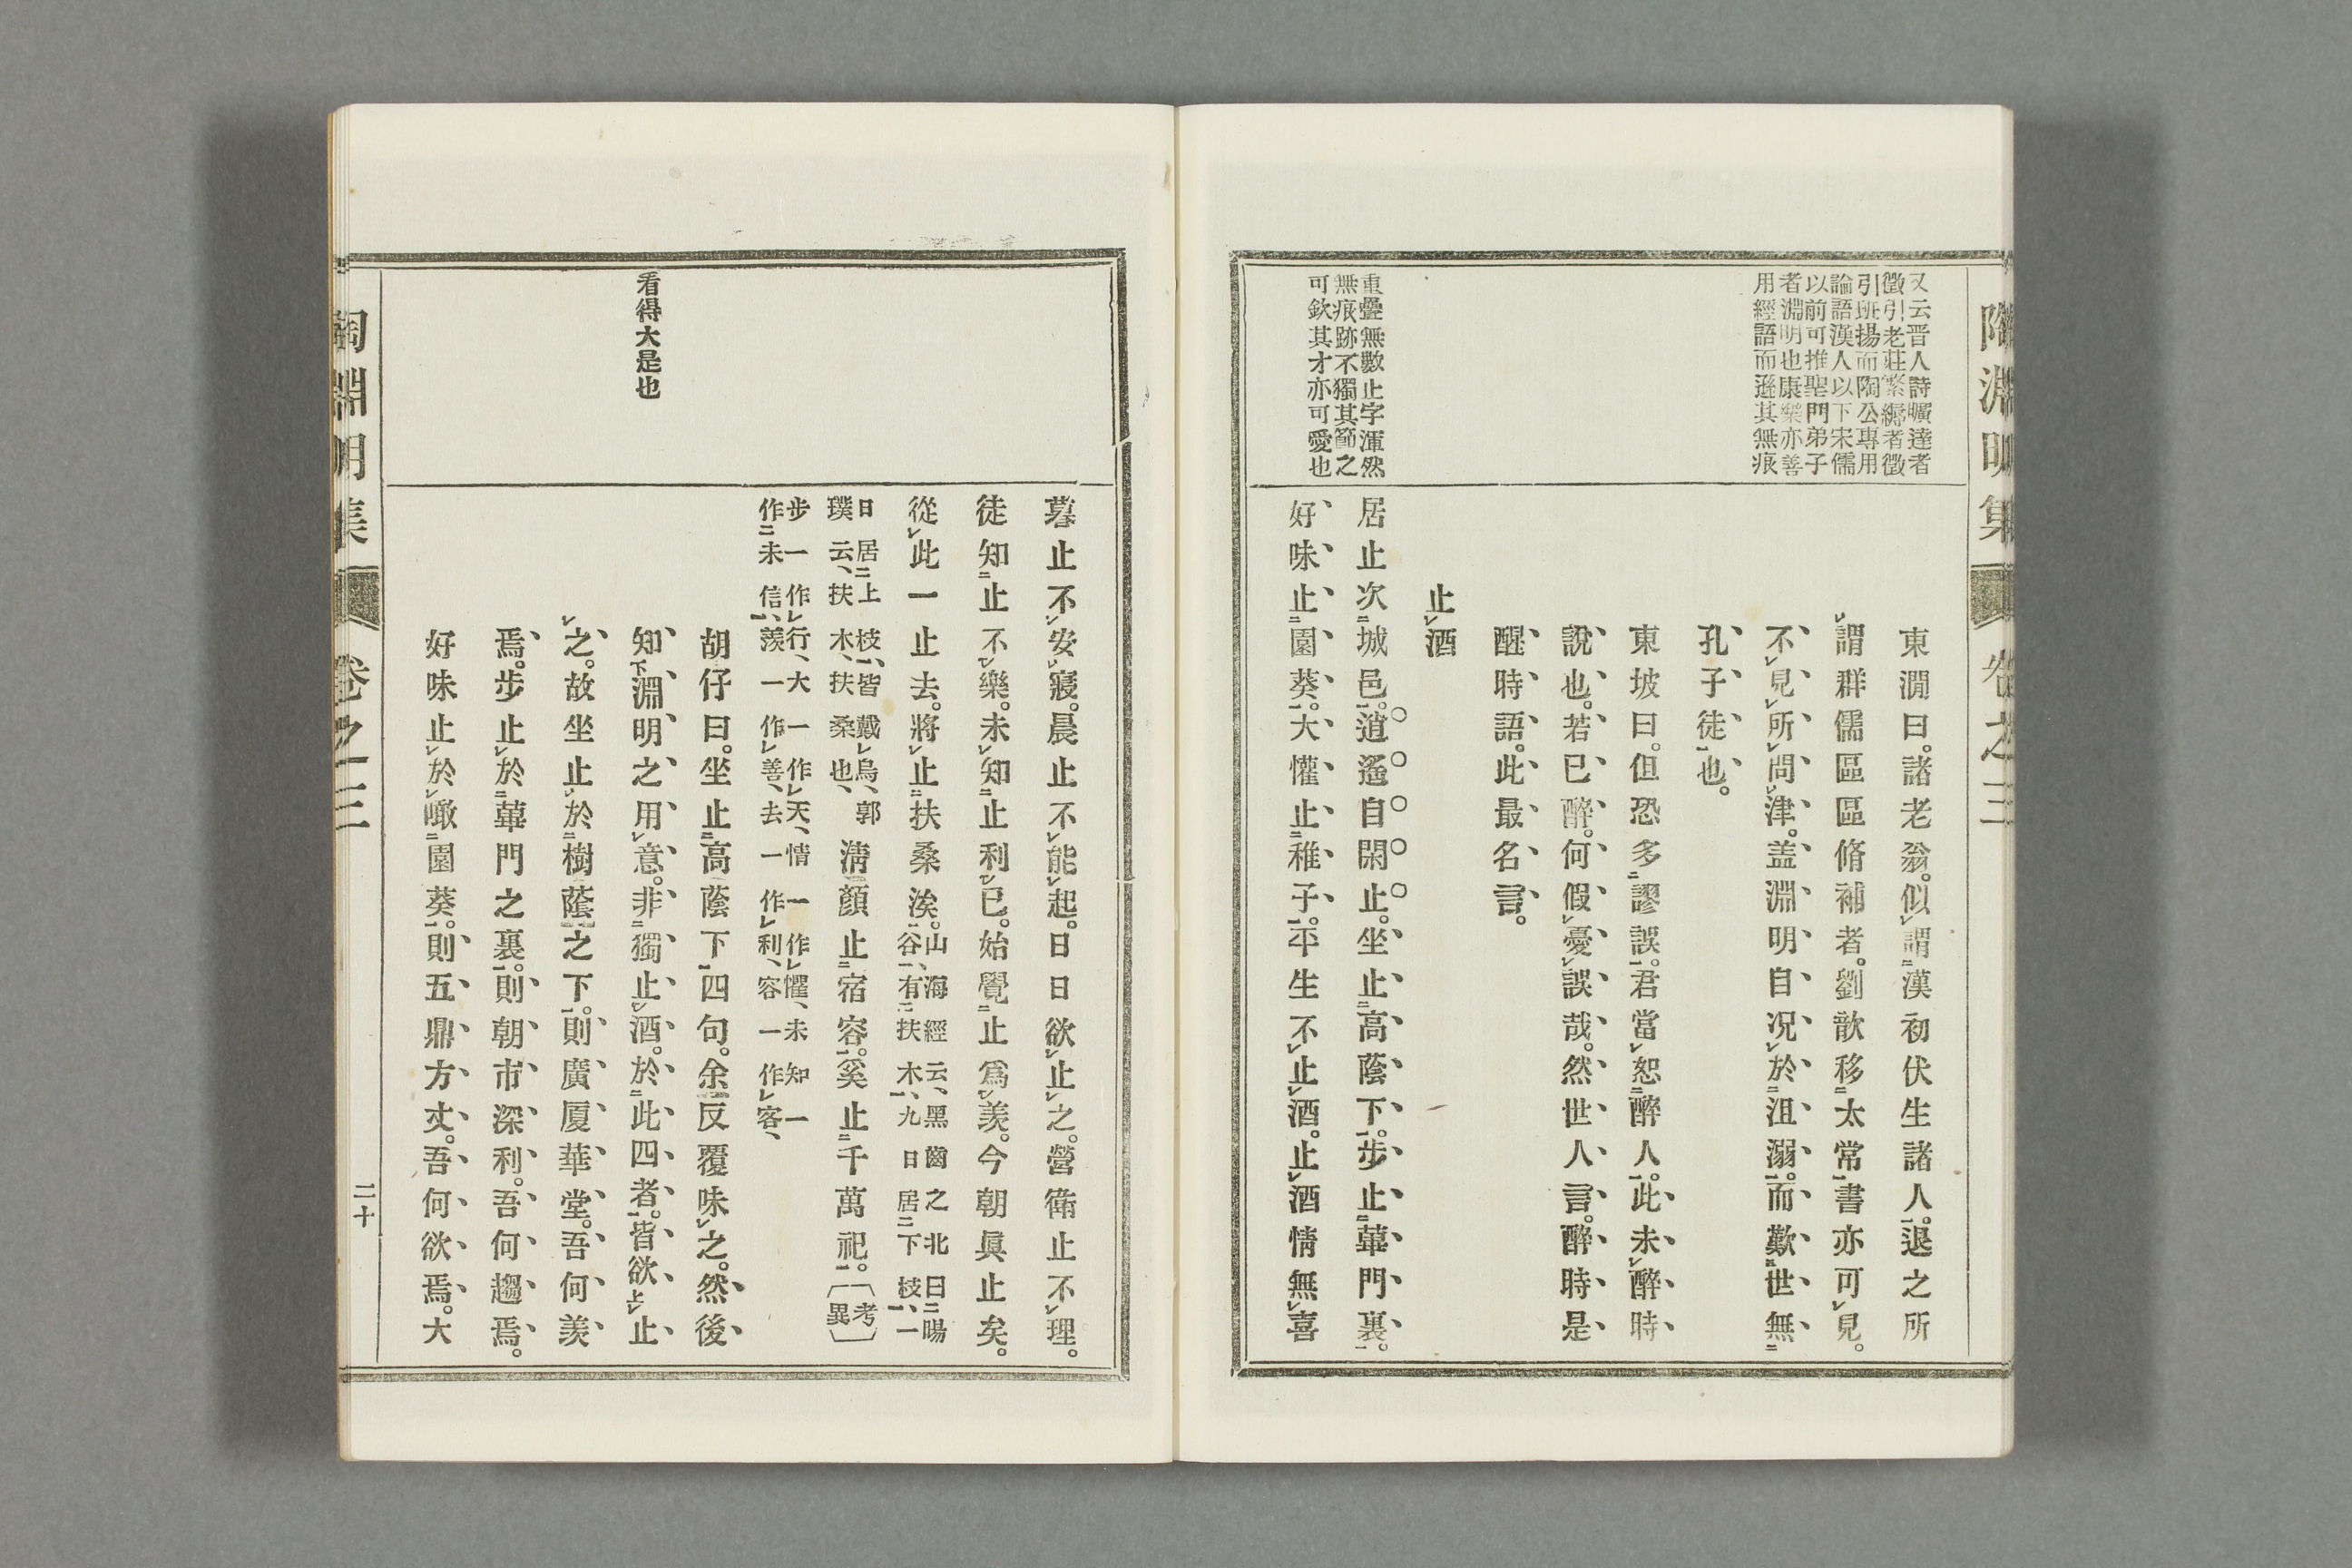 陶淵明集 卷之三
又云晋人詩曠達者
徵引老莊繁縟者徵
引班揚而陶公專用
論語漢人以下宋儒
以前可推聖門弟子
者淵明也康樂亦善
用經語而遜其無痕
東澗曰。諸老翁。似レ謂二漢初伏生諸人一。退之所
レ謂群儒區區脩補者。劉歆移二太常一書亦可レ見。
不レ見レ所レ問レ津。盖淵明自况レ於二沮溺一。而歎二世無二
孔子徒一也。
東坡曰。但恐多二謬誤一。君當レ恕二醉人一。此未レ醉時
說也。若已醉。何假レ憂レ誤哉。然世人言。醉時是
醒時語。此最名言。
止レ酒
重疊無數止字渾然
無痕跡不獨其節之
可欽其才亦可愛也
居止次二城邑一。逍遙自閑止。坐止二高蔭下一。步止二蓽門裏一。
好味止二園葵一。大懽止二稚子一。平生不レ止レ酒。止レ酒情無レ喜
暮止不レ安レ寢。晨止不レ能レ起。日日欲レ止レ之。營衛止不レ理。
徒知二止不レ樂。未レ知二止利レ已。始覺二止爲レ羨。今朝眞止矣。
從レ此一止去。將レ止二扶桑涘。山海經云、黑齒之北曰二暘
谷一、有二扶木一、九日居二下枝一、一
日居二上枝一、皆戴レ烏、郭
璞云、扶木、扶桑也、
淸顏止二宿容一。奚止二千萬祀一。〔考異〕
步一作レ行、大一作レ天、情一作レ懽、未知一
作二未信一、羨一作レ善、去一作レ利、容一作レ客、
胡仔曰。坐止二高蔭下一四句。余反覆味レ之。然後
看得大是也
知下淵明之用レ意。非二獨止レ酒。於二此四者一。皆欲上レ止
レ之。故坐止レ於二樹蔭之下一。則廣厦華堂。吾何羨
焉。步止レ於二蓽門之裏一。則朝市深利。吾何趨焉。
好味止レ於レ噉二園葵一。則五鼎方丈。吾何欲焉。大
陶淵明集 卷之三 二十